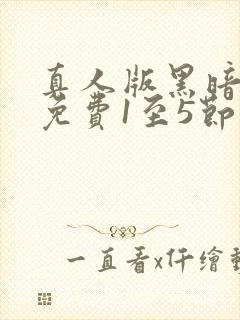 真人版黑暗
免費1至5節
一直看x仟繪動